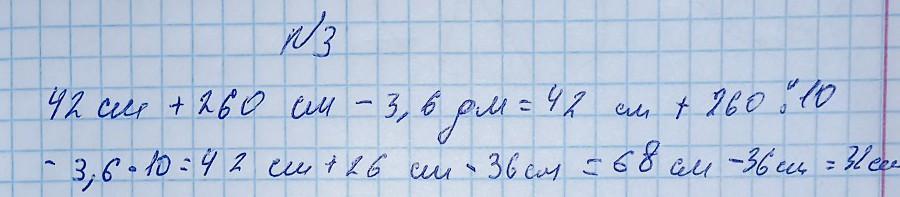 №3
42 см + 260 см - 3,6 дм = 42 см + 260 : 10
- 3,6 · 10 = 42 см + 26 см - 36 см = 68 см - 36 см = 32 см